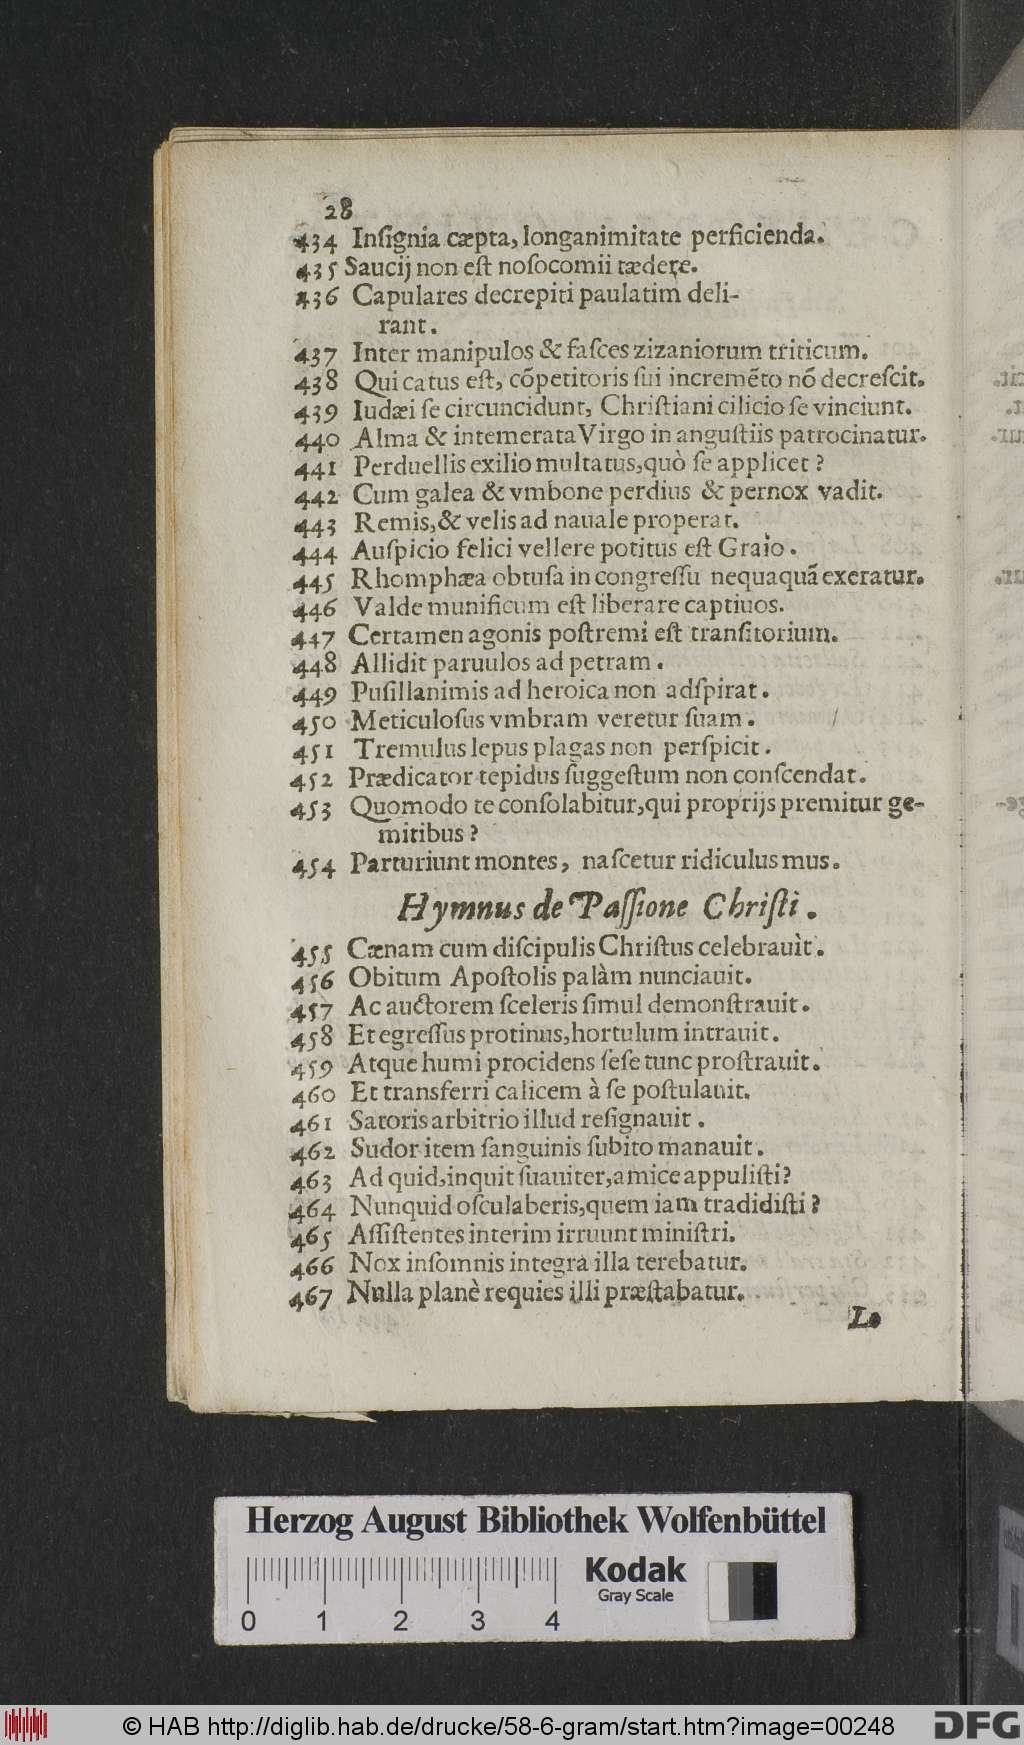 28
434 Inſignia cæpta, longanimitate perficienda.
435 Saucij non eſt noſocomii tædere.
436 Capulares decrepiti paulatim deli-
rant.
437 Inter manipulos & faſces zizaniorum triticum.
438 Qui catus eſt, cõpetitoris ſui incremẽto nõ decreſcit.
439 Iudæi ſe circuncidunt, Chriſtiani cilicio ſe vinciunt.
440 Alma & intemerata Virgo in anguſtiis patrocinatur.
441 Perduellis exilio multatus, quò ſe applicet?
442 Cum galea & vmbone perdius & pernox vadit.
443 Remis, & velis ad nauale properat.
444 Auſpicio felici vellere potitus eſt Graio.
445 Rhomphæa obtuſa in congreſſu nequaquã exeratur.
446 Valde munificum eſt liberare captiuos.
447 Certamen agonis poſtremi eſt tranſitorium.
448 Allidit paruulos ad petram.
449 Puſillanimis ad heroica non adſpirat.
450 Meticuloſus vmbram veretur ſuam.
451 Tremulus lepus plagas non perſpicit.
452 Prædicator tepidus ſuggeſtum non conſcendat.
453 Quomodo te conſolabitur, qui proprijs premitur ge-
mitibus?
454 Parturiunt montes, naſcetur ridiculus mus.
Hymnus de Paſſione Chriſti.
455 Cænam cum diſcipulis Chriſtus celebrauit.
456 Obitum Apoſtolis palàm nunciauit.
457 Ac auctorem ſceleris ſimul demonſtrauit.
458 Et egreſſus protinus, hortulum intrauit.
459 Atque humi procidens ſeſe tunc proſtrauit.
460 Et transferri calicem à ſe poſtulauit.
461 Satoris arbitrio illud reſignauit.
462 Sudor item ſanguinis ſubito manauit.
463 Ad quid, inquit ſuauiter, amice appuliſti?
464 Nunquid oſculaberis, quem iam tradidiſti?
465 Aſſiſtentes interim irruunt miniſtri.
466 Nox inſomnis integra illa terebatur.
467 Nulla planè requies illi præſtabatur.
Lo
Herzog August Bibliothek Wolfenbüttel
Kodak
Gray Scale
0 1 2 3 4
© HAB http://diglib.hab.de/drucke/58-6-gram/start.htm?image=00248
DFG